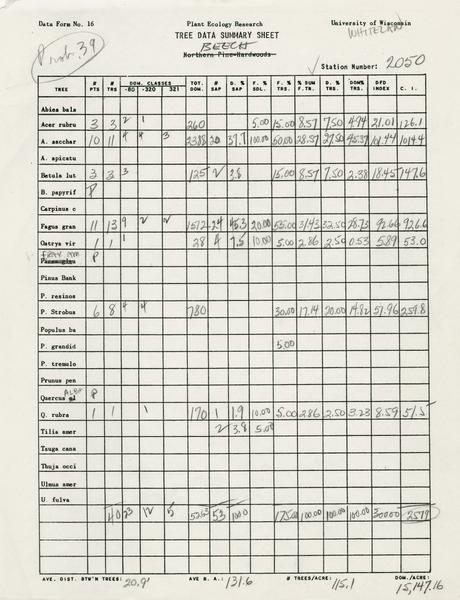 Data Form No. 16 Plant Ecology Research University of Wisconsin
TREE DATA SUMMARY SHEET WHITELAW
Prob. 39 BEECH
Northern Pine-Hardwoods
Station Number: 2050
TREE # PTS # TRS DOM. CLASSES -80 -320 321 TOT. DOM. # SAP D. % SAP F. % SDL. F. % TRS. % SUM F.TR. D. % TRS. DOM% TRS. DFD INDEX C. I.
Abies bals
Acer rubru 3 3 2 1 260 5.00 15.00 8.57 7.50 4.94 21.01 126.1
A. sacchar 10 11 4 4 3 2388 20 37.7 100.00 50.00 28.57 27.50 45.37 101.44 1014.4
A. spicatu
Betula lut 3 3 3 125 2 3.8 15.00 8.57 7.50 2.38 18.45 147.6
B. papyrif P
Carpinus c
Fagus gran 11 13 9 2 2 1512 24 45.3 20.00 55.00 31.43 32.50 28.73 92.66 926.6
Ostrya vir 1 1 1 28 4 7.5 10.00 5.00 2.86 2.50 0.53 5.89 53.0
P
Pinus Bank
P. resinos
P. Strobus 6 8 4 4 780 30.00 17.14 20.00 14.82 51.96 259.8
Populus ba
P. grandid 5.00
P. tremulo
Prunus pen
Quercus alba P
Q. rubra 1 1 1 170 1 1.9 10.00 5.00 2.86 2.50 3.23 8.59 51.5
Tilia amer 2 3.8 5.00
Tsuga cana
Thuja occi
Ulmus amer
U. fulva
40 23 12 5 5263 53 100.0 175.00 100.00 100.00 100.00 300.00 2579
AVE. DIST. BTW'N TREES: 20.9' AVE B. A.: 131.6 # TREES/ACRE: 115.1 DOM./ACRE: 15,147.16